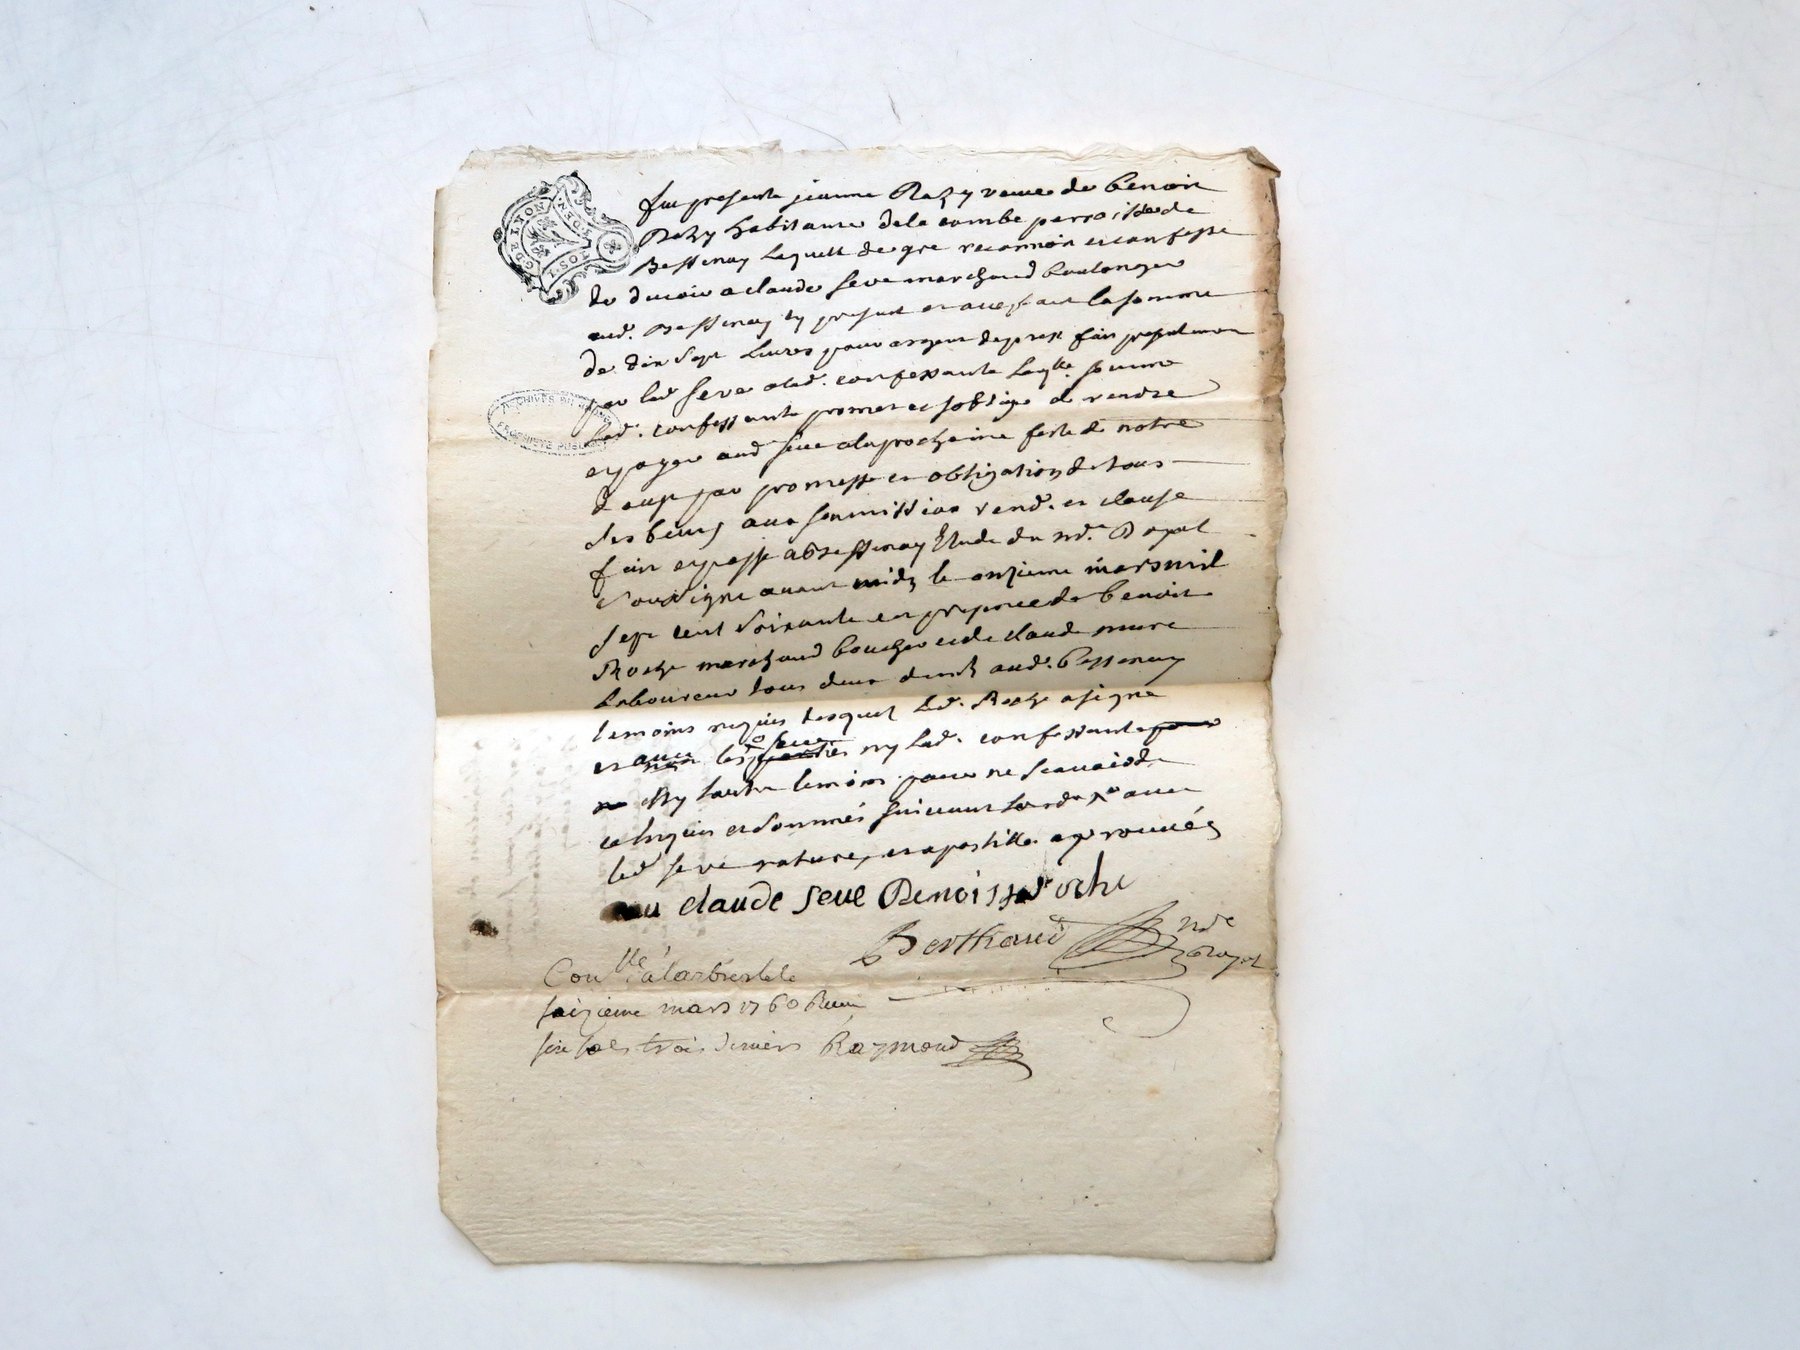 G. DE LYON
fut presente jeanne Razy veuve de benoit
Razy habitante dela combe parroisse de
Bessenay Laquelle de gre reconnoit et confesse
de devoir a claude seve marchand boulanger
aud. Bessenay icy present et acceptant la somme
de dix sept Livres pour argent de prest fait
par led seve a lad. confessante Laqlle somme
Lad. confessante promet et soblige de rendre
et payer aud seve a la prochaine feste de notre
d'aust par promesse et obligation de tous
ses biens aux soumission rend. et clause
fait et passe a Bessenay Etude du nore Royal
soussigne avant midy le onzieme mars mil
sept cent soixante en presence de benoit
Roche marchand boucher et de claude mure
Laboureur tous deux aud. bessenay
temoins requis lesquel Led. Roche a signe
et avec led seve ny Lad. confessante
ny lautre temoins pour ne scavoir de
ce enquis et sommés suivant avec
led seve rature, et apostille aprouvées
claude seve Benoist Roche
Berthaud nore
Royal
ARCHIVES DU RHONE
PROPRIETE PUBLIQUE
Conlle a larbresle le
saizieme mars 1760 Reçu
trois deniers Raymond